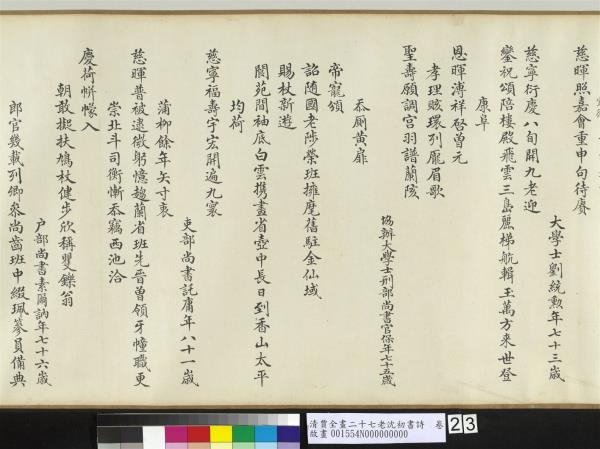 慈暉照嘉會重申句待賡
大學士劉統勲年七十三歲
慈寧衍慶八旬開九老迎
鑾祝頌陪樓殿飛雲三島麗梯航輯玉萬方來世登
康阜
恩暉溥祥啓曾元
孝理晐環列龎眉歌
聖壽願調宮羽譜蘭陔
協辦大學士刑部尚書官保年七十五歲
忝厠黃扉
帝寵頒
詔隨國老陟榮班擁麾舊駐金仙域
賜杖新遊
閬苑間袖底白雲携畫省壺中長日到香山太平
均荷
慈寧福壽宇宏開遍九寰
吏部尚書託庸年八十一歲
蒲柳餘年矢寸衷
慈暉普被逮微躬憶趨蘭省班先晉曾領牙幢職更
崇北斗司衡慚忝竊西池洽
慶荷帡幪入
朝敢擬扶鳩杖健步欣稱矍鑠翁
户部尚書素爾訥年七十六歲
郎官幾載列卿叅尚齒班中綴珮簪員備典
清賈全畫二十七老沈初書詩 卷
故畫 001554N000000000
23